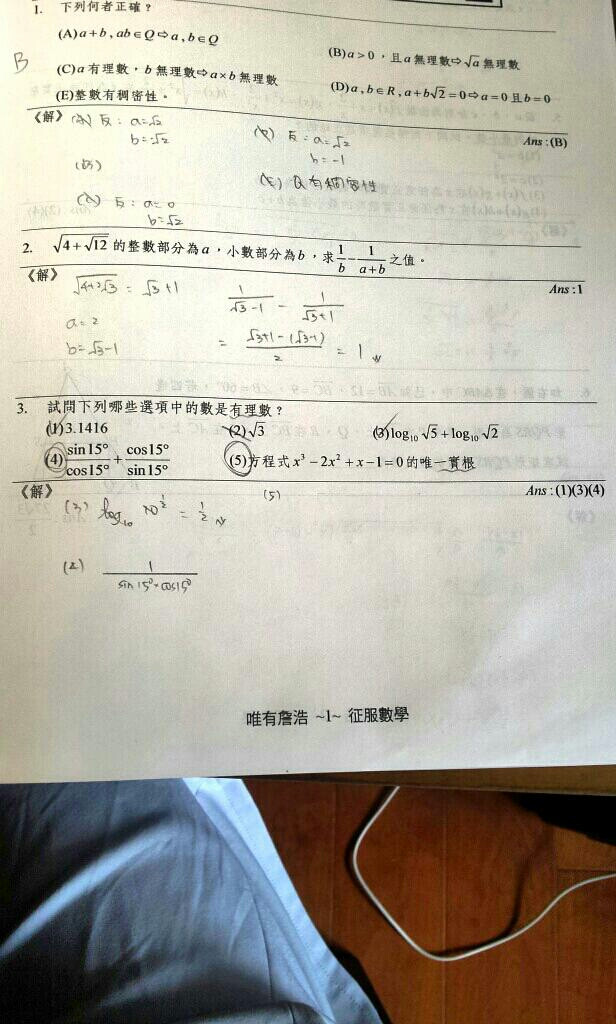 1. 下列何者正確？
(A) a+b , ab∈Q⇨a , b∈Q
(B) a>0 , 且 a 無理數⇨√a 無理數
B
(C) a 有理數，b 無理數⇨a×b 無理數
(D) a , b∈R , a+b√2=0⇨a=0 且 b=0
(E)整數有稠密性。
《解》
Ans : (B)
(A) 反 : a=√2
b=-√2
(D) 反 : a=√2
b=-1
(E) Q 有稠密性
(C) 反 : a=0
b=√2
2. √(4+√12) 的整數部分為 a，小數部分為 b，求 1/b - 1/(a+b) 之值。
《解》
Ans : 1
√(4+2√3) = √3+1
1/(√3-1) - 1/(√3+1)
a=2
b=√3-1
= (√3+1-(√3-1))/2 = 1
3. 試問下列哪些選項中的數是有理數？
(1)3.1416
(2)√3
(3)log₁₀√5+log₁₀√2
(4) sin15°/cos15° + cos15°/sin15°
(5)方程式 x³-2x²+x-1=0 的唯一實根
《解》
Ans : (1)(3)(4)
(3) log₁₀ 10^(1/2) = 1/2
(5)
1/(sin15°×cos15°)
唯有詹浩 ~1~ 征服數學